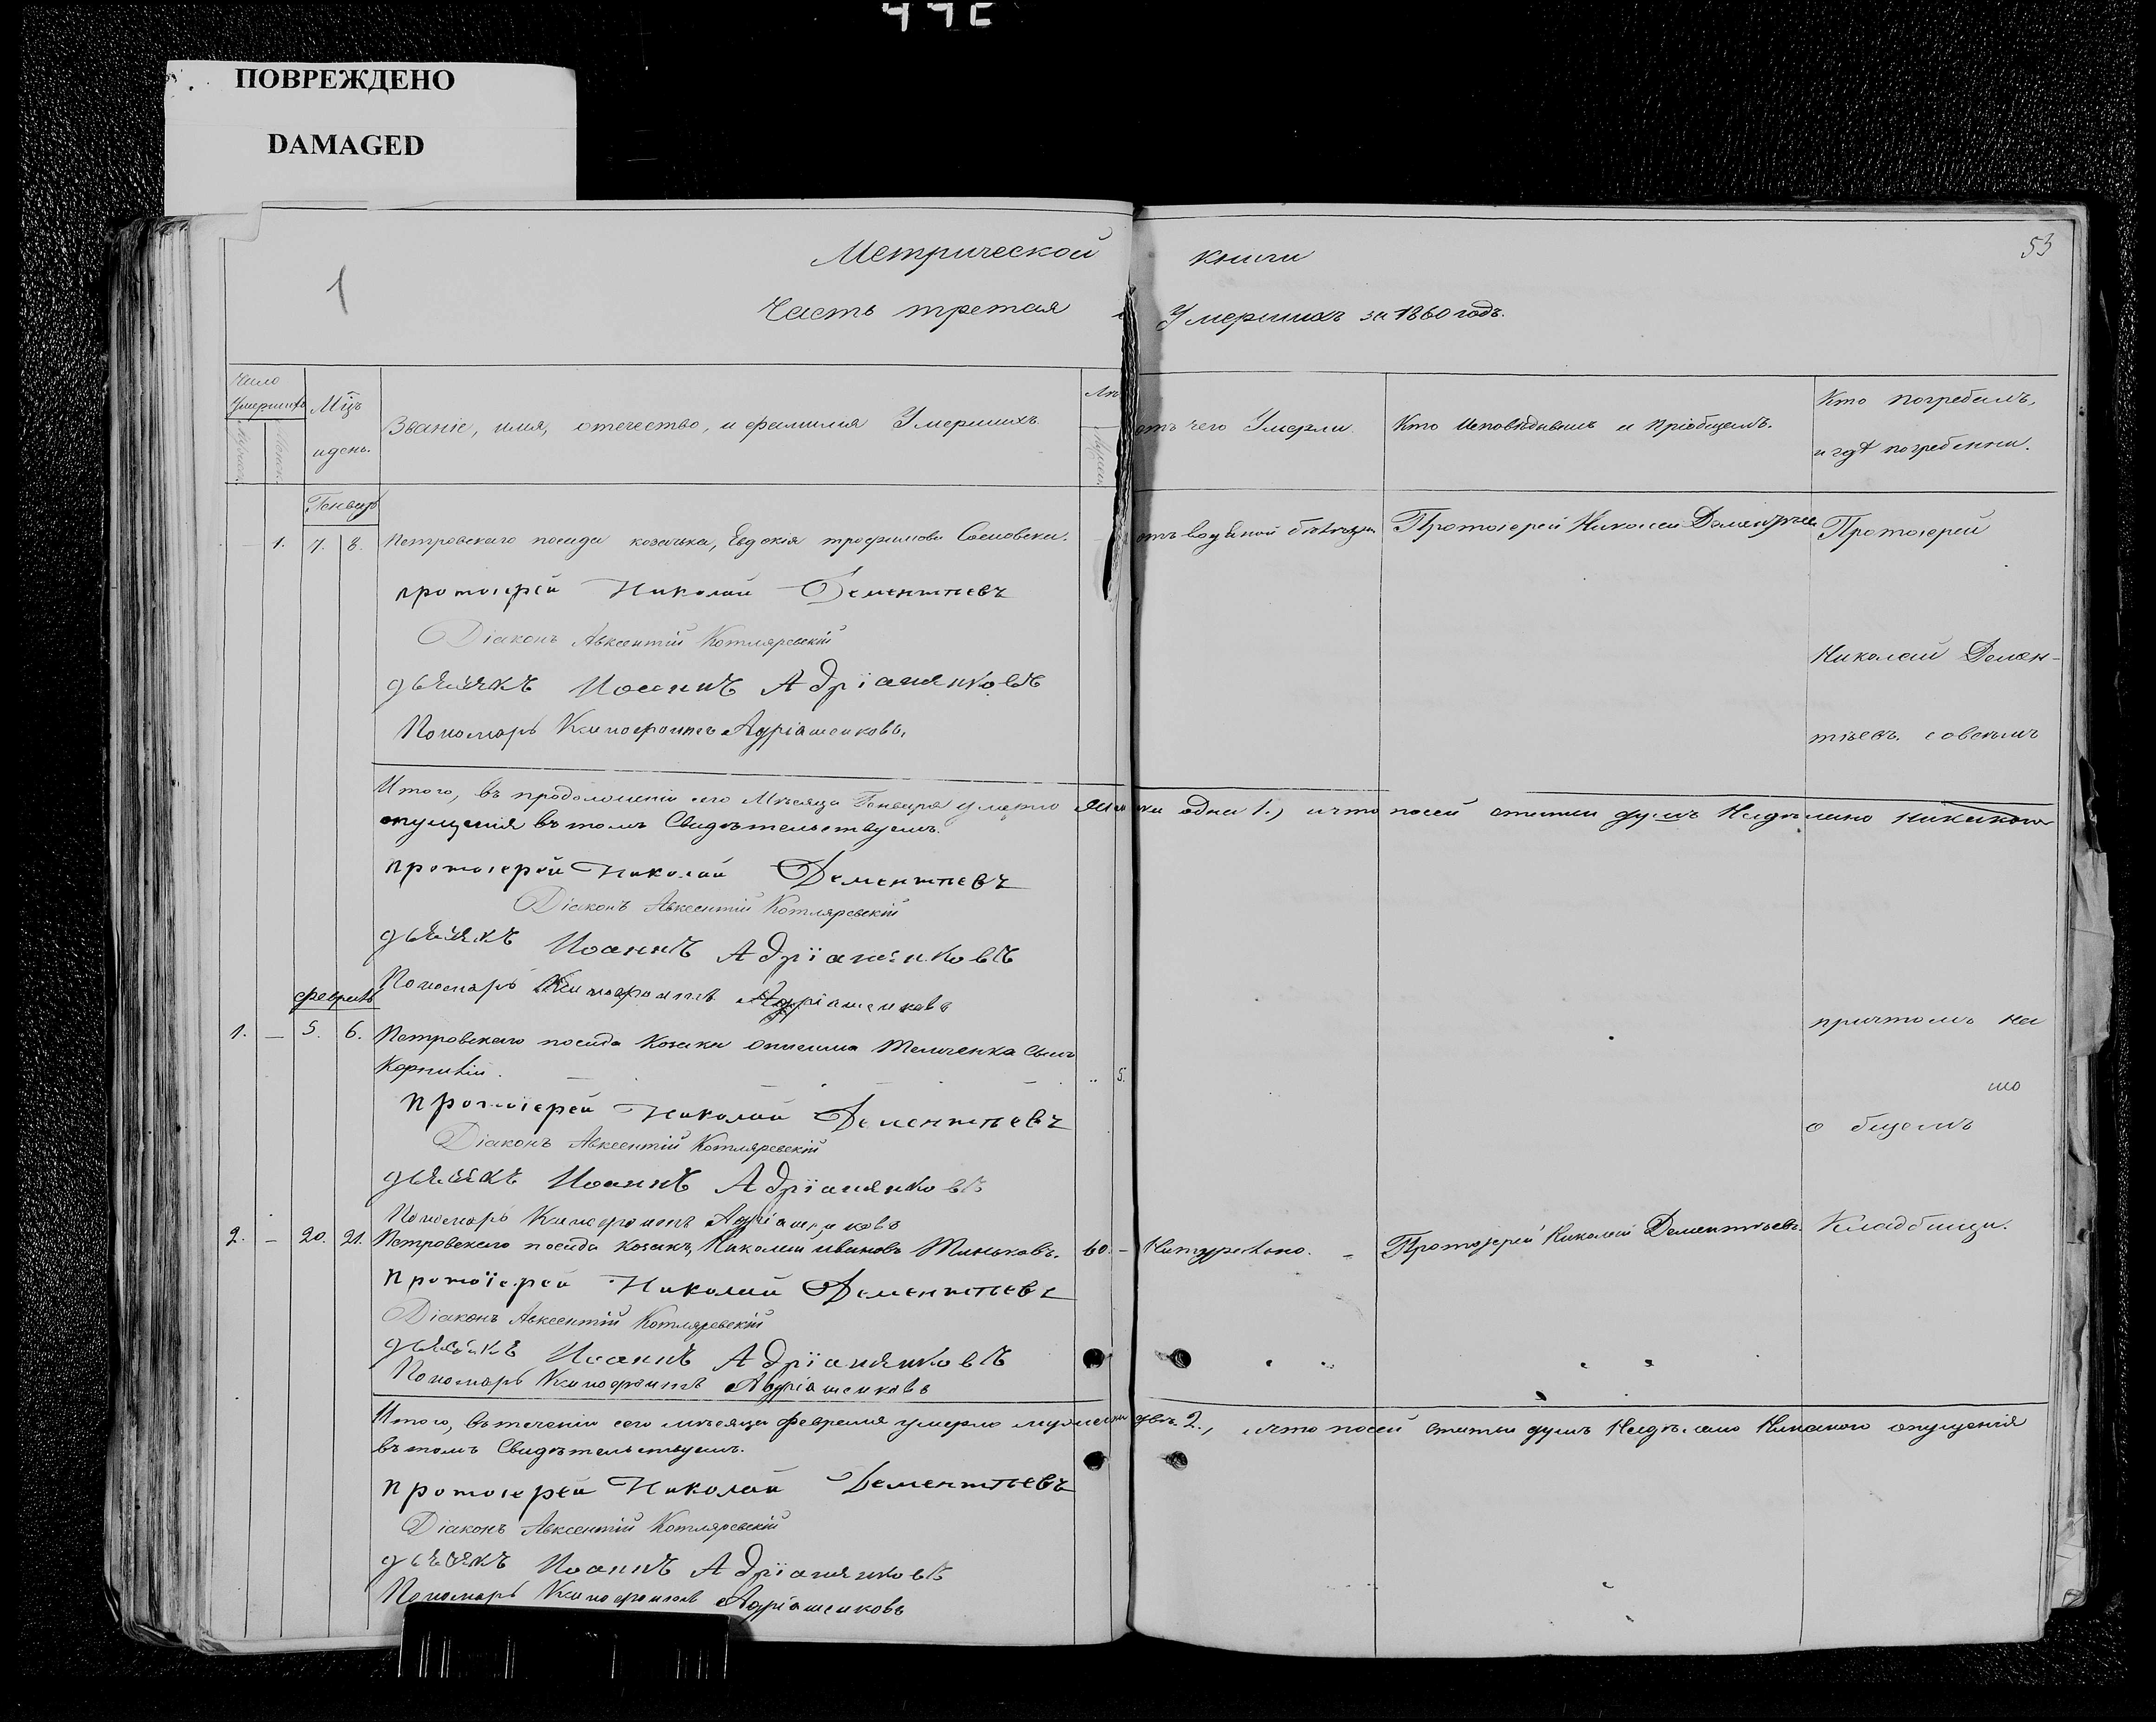 ПОВРЕЖДЕНО
DAMAGED
53
1
Метрической книги
Часть третая Умершихъ за 1860 годъ.
Число Умершихъ
Мцъ и день.
Званіе, имя, отечество, и фамилія Умершихъ
отъ чего Умерли
Кто Исповѣдывалъ и пріобщалъ.
Кто погребалъ, и гдѣ погребенны.
Генварь
1. 7. 8. Петровскаго посада козачка, Евдокія трофимова
отъ
Протоіерей Николай Дементьевъ
Протоіерей
протоіерей Николай Дементьевъ
Діаконъ Авксентій Котляревскій
Николай Демен-
дьячекъ Иоаннъ Адріашенковъ
Пономарь Ксенофонтъ Адріашенковъ
тьевъ. совсемъ
Итого, въ продолженіи сего Мѣсяца Генваря умерло одна 1., и что по сей статьи душъ Недѣлано никакого
опущенія въ томъ Свидѣтельствуемъ.
протоіерей Николай Дементьевъ
Діаконъ Авксентій Котляревскій
дьячекъ Иоаннъ Адріашенковъ
Пономарь Ксенофонтъ Адріашенковъ
февраль
1. – 5. 6. Петровскаго посада Козака сынъ
причтомъ на
5.
протоіерей Николай Дементьевъ
о бщемъ
Діаконъ Авксентій Котляревскій
дьячекъ Иоаннъ Адріашенковъ
Пономарь Ксенофонтъ Адріашенковъ
2. – 20. 21. Петровскаго посада козакъ, Николай ивановъ 60. – Натурально. – Протоіерей Николай Дементьевъ Кладбищи.
протоіерей Николай Дементьевъ
Діаконъ Авксентій Котляревскій
дьячекъ Иоаннъ Адріашенковъ
Пономарь Ксенофонтъ Адріашенковъ
Итого, въ теченіи сего мѣсяца февраля умерло двѣ 2., и что по сей Статьи душъ Недѣлано Никакого опущенія
въ томъ Свидѣтельствуемъ.
протоіерей Николай Дементьевъ
Діаконъ Авксентій Котляревскій
дьячекъ Иоаннъ Адріашенковъ
Пономарь Ксенофонтъ Адріашенковъ